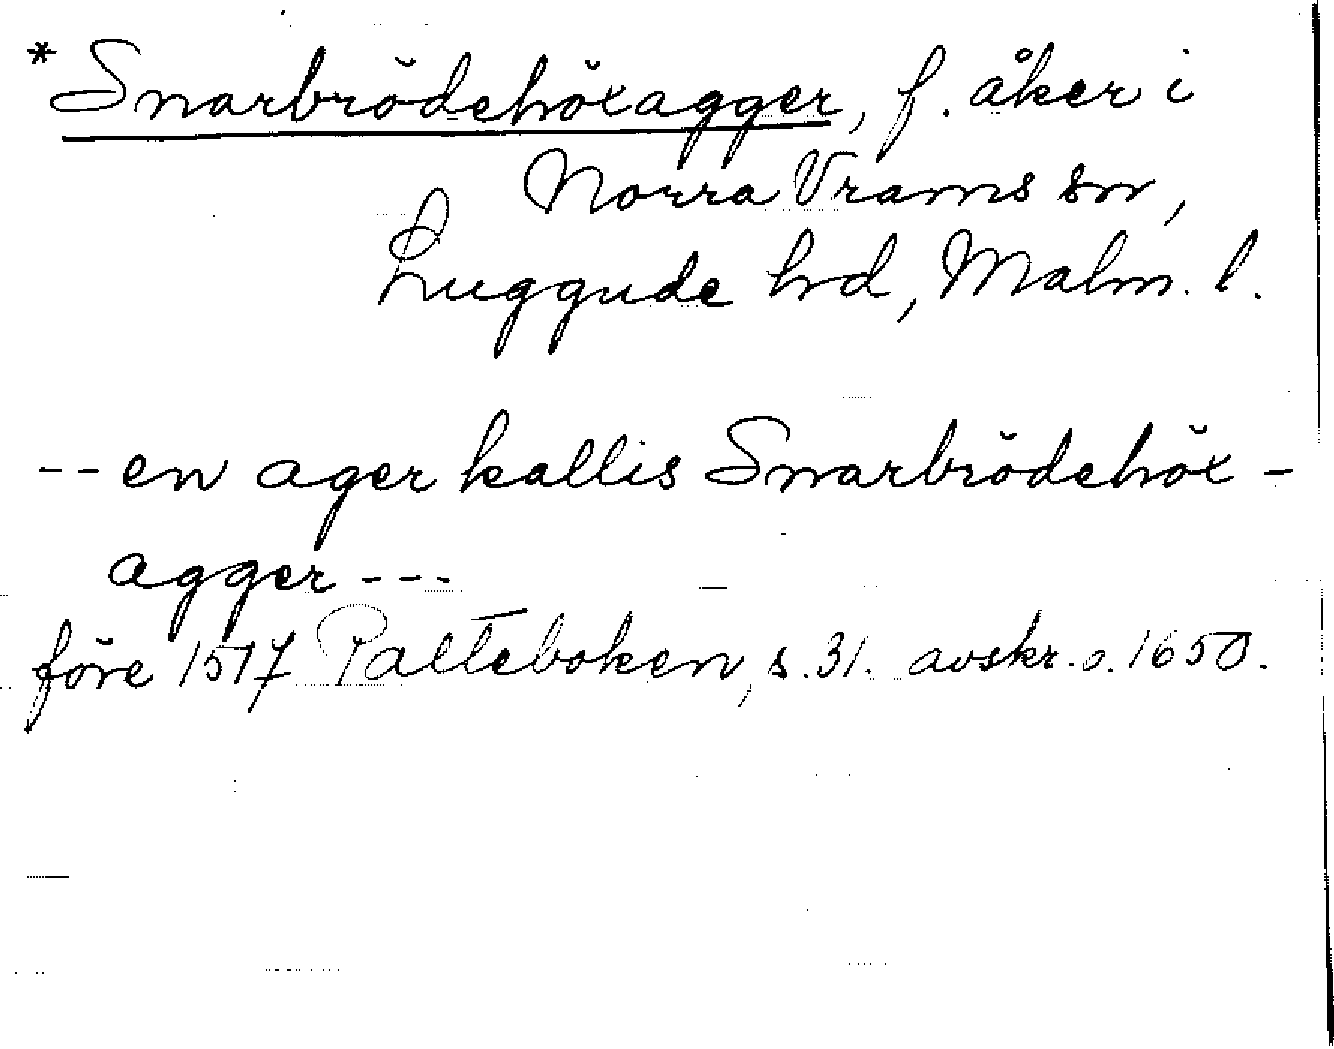 *Snarbrödehöxagger, f. åker i
Norra Vrams sn,
Luggude hd, Malm. l.
-- en ager kallis Snarbrödehöx-
agger ---
före 1517 Palteboken, s. 31. avskr. o. 1650.